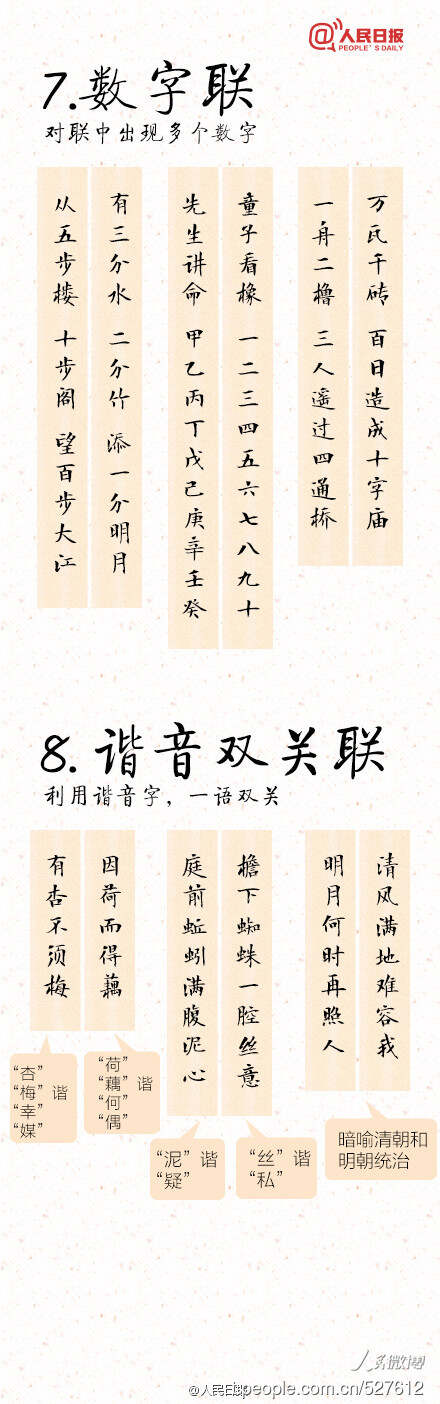 @人民日报
PEOPLE'S DAILY
7.数字联
对联中出现多个数字
万瓦千砖 百日造成十字庙
一舟二橹 三人遥过四通桥
童子看橡 一二三四五六七八九十
先生讲命 甲乙丙丁戊己庚辛壬癸
有三分水 二分竹 添一分明月
从五步楼 十步阁 望百步大江
8.谐音双关联
利用谐音字，一语双关
清风满地难容我
明月何时再照人
暗喻清朝和
明朝统治
檐下蜘蛛一腔丝意
庭前蚯蚓满腹泥心
“丝”谐
“私”
“泥”谐
“疑”
因荷而得藕
有杏不须梅
“荷”
“藕”谐
“何”
“偶”
“杏”
“梅”谐
“幸”
“媒”
人民微博
@人民日报people.com.cn/527612